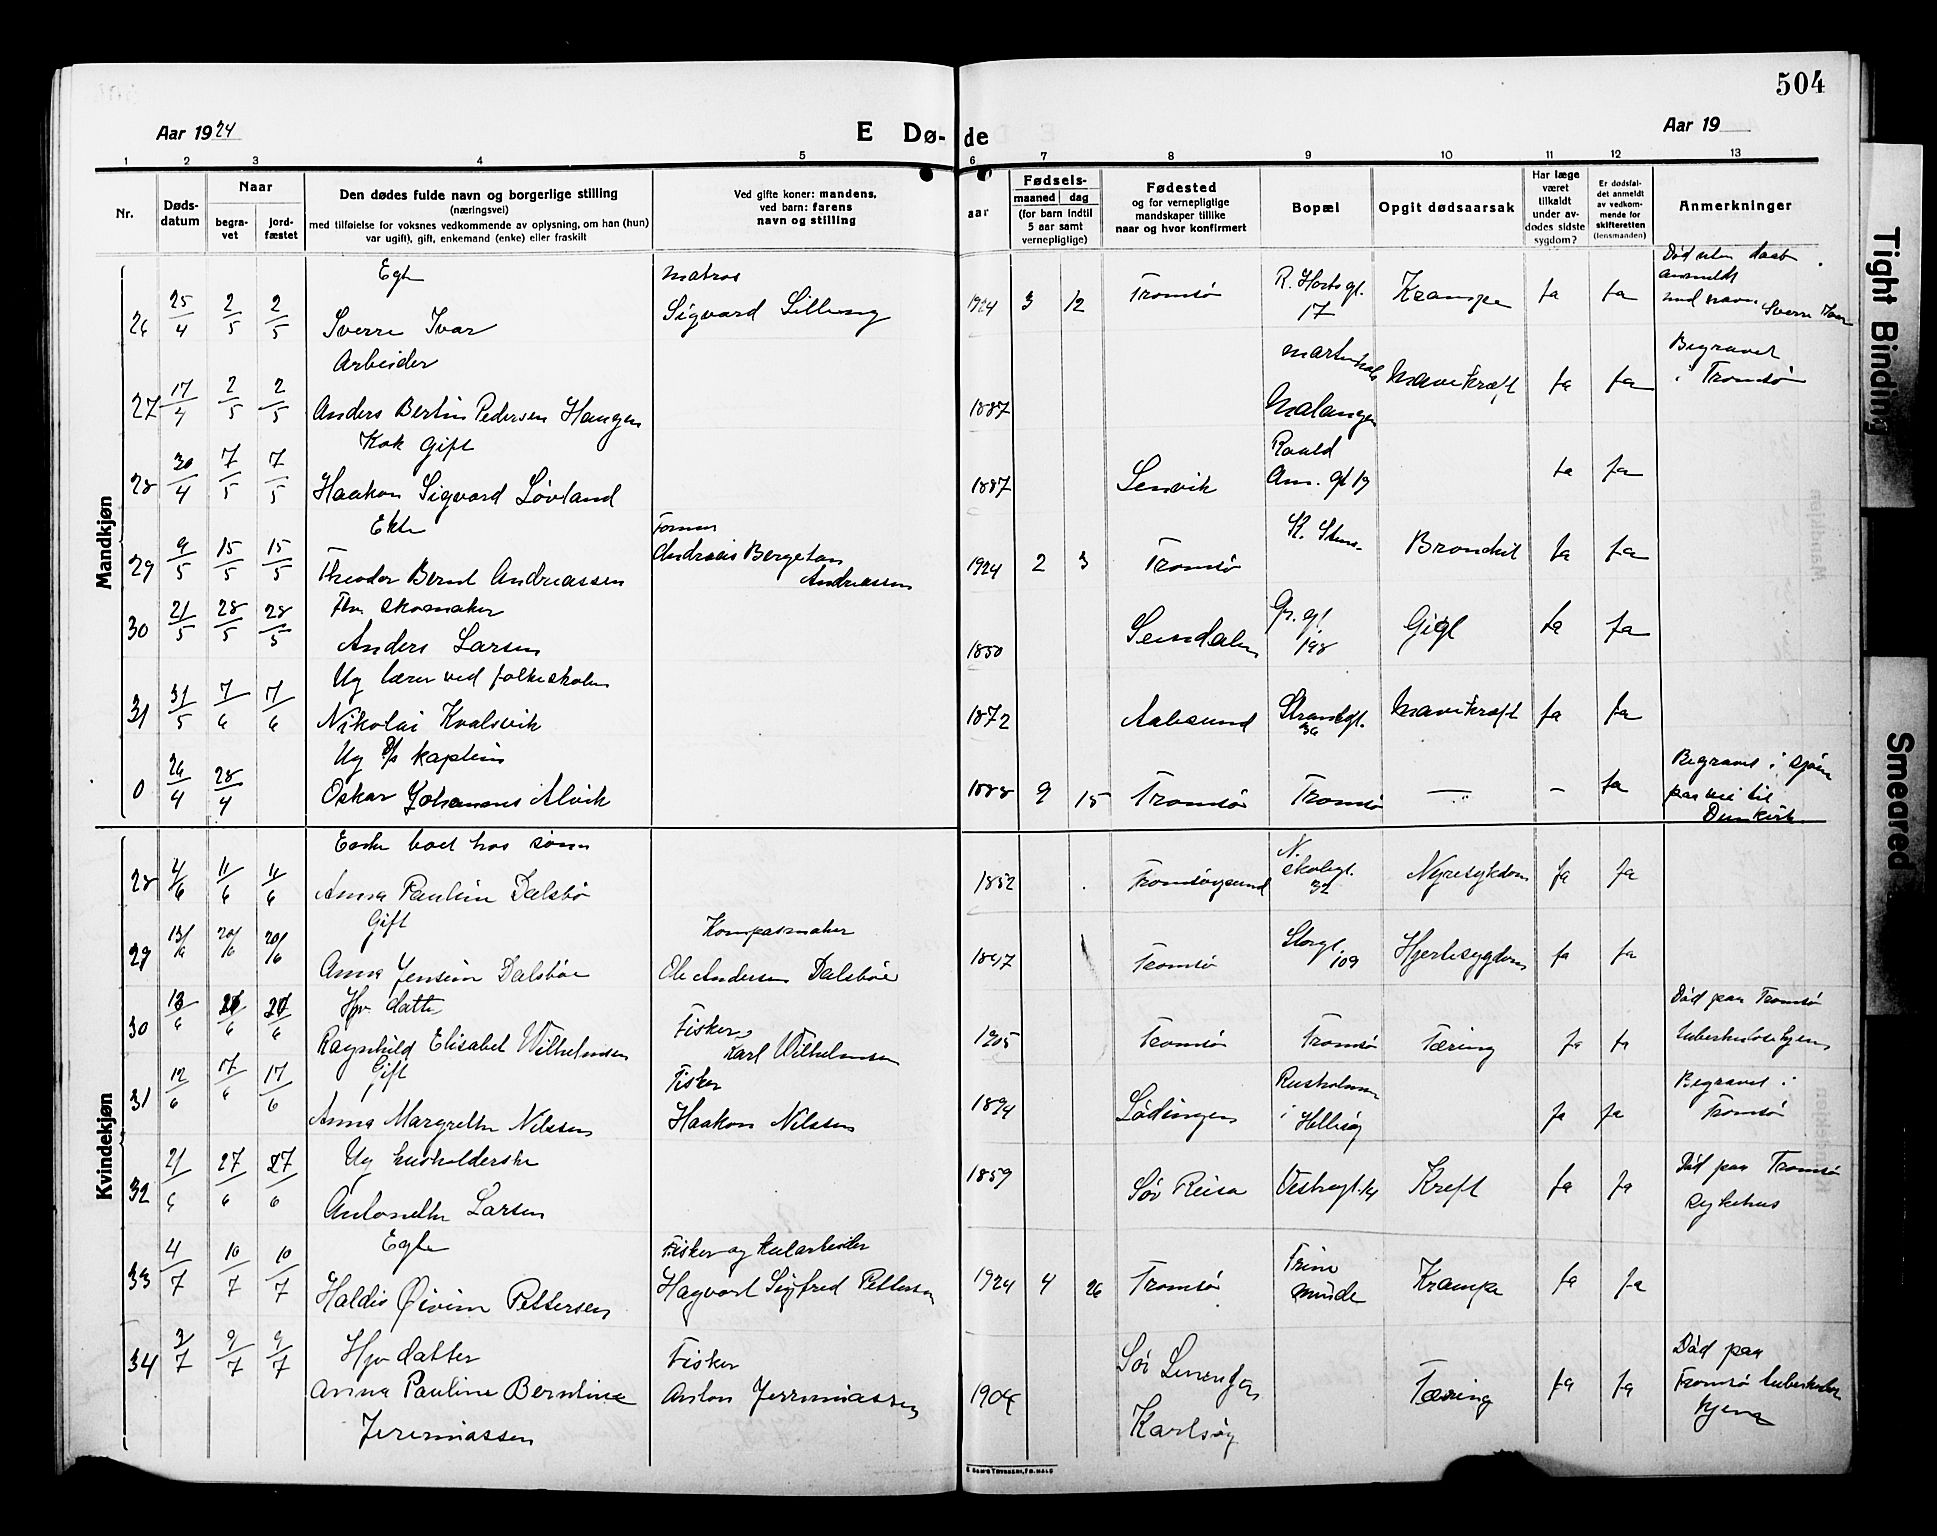 504
Aar 1924
E Dø- de
Aar 19
1 2 3 4 5 6 7 8 9 10 11 12 13
Nr.
Døds-
datum
Naar
begra-
vet
jord-
fæstet
Den dødes fulde navn og borgerlige stilling
(næringsvei)
med tilføielse for voksnes vedkommende av oplysning, om han (hun)
var ugift), gift, enkemand (enke) eller fraskilt
Ved gifte koner: mandens,
ved barn: farens
navn og stilling
aar
Fødsels-
maaned dag
(for barn indtil
5 aar samt
vernepligtige)
Fødested
og for vernepligtige
mandskaper tillike
naar og hvor konfirmert
Bopæl
Opgit dødsaarsak
Har læge
været
tilkaldt
under av-
dødes sidste
sygdom?
Er dødsfal-
det anmeldt
av vedkom-
mende for
skifteretten
(lensmanden)
Anmerkninger
Mandkjøn
26 25/4 2/5 2/5 Egte Sverre Ivar
matros Sigvard
1924 3 12 Tromsø 17 Krampe Ja Ja
med navn Sverre Ivar
27 17/4 2/5 2/5 Arbeider
Anders Bertin Pedersen Haugen
1887 Malangen Mavekræft Ja Ja Begravet
i Tromsø
28 30/4 7/5 7/5 Kok gift
Haakon Sigvard Løvland
1887 Lenvik Roald
Am. gt 19 Ja Ja
29 9/5 15/5 15/5 Ekte
Theodor Bernt Andreassen
Andreas Bergeton
Andreassen
1924 2 3 Tromsø Ja Ja
30 21/5 28/5 28/5 skomaker
Anders Larsen
1850 Gr. gt. 198 Gigt Ja Ja
31 31/5 7/6 7/6 Ug lærer ved folkeskolen
Nikolai Kvalsvik
1872 Aalesund Strandgt. 36 Mavekræft Ja Ja
0 26/4 28/4 Ug D/s kaptein
Oskar Johannes Alvik
1888 9 15 Tromsø Tromsø — — Ja
Begravet i sjøen
paa vei til
Dunkirk
Kvindekjøn
28 4/6 11/6 11/6 Enke boet hos sønn
Anna Pauline Dalsbø
1852 Tromsøysund N. skolegt. 32 Nyresykdom Ja Ja
29 13/6 20/6 20/6 Gift
Anna Jensine Dalsbøe
Kompasmaker
Ole Andersen Dalsbøe
1847 Tromsø Storgt. 109 Hjertesygdom Ja Ja
30 13/6 /6 /6 Hjv datter
Ragnhild Elisabet Wilhelmsen
Fisker
Karl Wilhelmsen
1905 Tromsø Tromsø Tæring Ja Ja
Død paa Tromsø
tuberkulosehjem
31 12/6 17/6 17/6 Gift
Anna Margrethe Nilssen
Fisker
Haakon Nilssen
1894 Lødingen Rusholmen
i Hillesøy Ja Ja
Begravet i
Tromsø
32 21/6 27/6 27/6 Ug husholderske
Antonette Larsen
1859 Sør Reisa Vestregt. Kreft Ja Ja
Død paa Tromsø
sykehus
33 4/7 10/7 10/7 Egte
Haldis Øivine Pettersen
Fisker og kularbeider
Hagvart Sigfred Pettersen
1924 4 26 Tromsø Trine
minde Krampe Ja Ja
34 3/7 9/7 9/7 Hjv datter
Anna Pauline Berntine
Jeremiassen
Fisker
Anton Jeremiassen
1904 Sør Lenangen
Karlsøy Tæring Ja Ja
Død paa
Tromsø tuberkulose
hjem
E. SEM'S TRYKKERI, FR.HALD
Tight Binding
Smeared